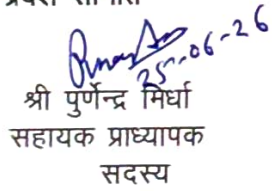 25-06-26
श्री पुर्णेन्द्र मिर्धा
सहायक प्राध्यापक
सदस्य